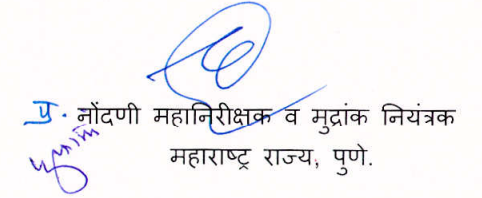 प्र. नोंदणी महानिरीक्षक व मुद्रांक नियंत्रक
महाराष्ट्र राज्य, पुणे.